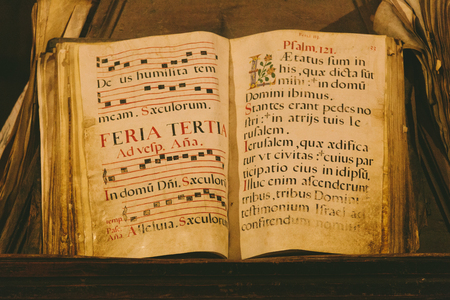 De us humilita tem
meam. Sæculorum.
FERIA TERTIA
Ad vesp. Aña.
In domũ Dñi. Sæculorũ
temp.
Pas. Alleluia. Sæculoru
Aña.
Psalm. 121.
LÆtatus sum in
his, quæ dicta sut
mihi: in domũ
Domini ibimus.
Stantes erant pedes no
stri: in atrijs tuis Ie
rusalem.
Ierusalem, quæ ædifica
tur vt civitas: cuius par
ticipatio eius in idipsũ,
Illuc enim ascenderunt
tribus, tribus Domini
testimonium Israel ad
confitendum nomini